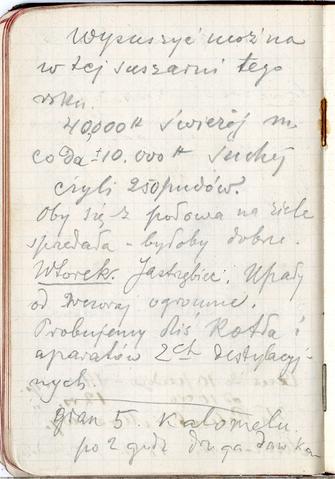 Wysuszyć można
w tej suszarni tego
roku.
40,000 ℔ świeżej m
co da ± 10.000 ℔ suchej
czyli 250 pudów.
Oby się z połowa na ziele
sprzedała - byłoby dobrze.
Wtorek. Jastrzębiec. Upały
od wczoraj ogromne.
Probujemy dziś Kotła i
aparatów 2ch destylacyj-
nych
gran 5 Kalomelu.
po 2 godz druga dawka